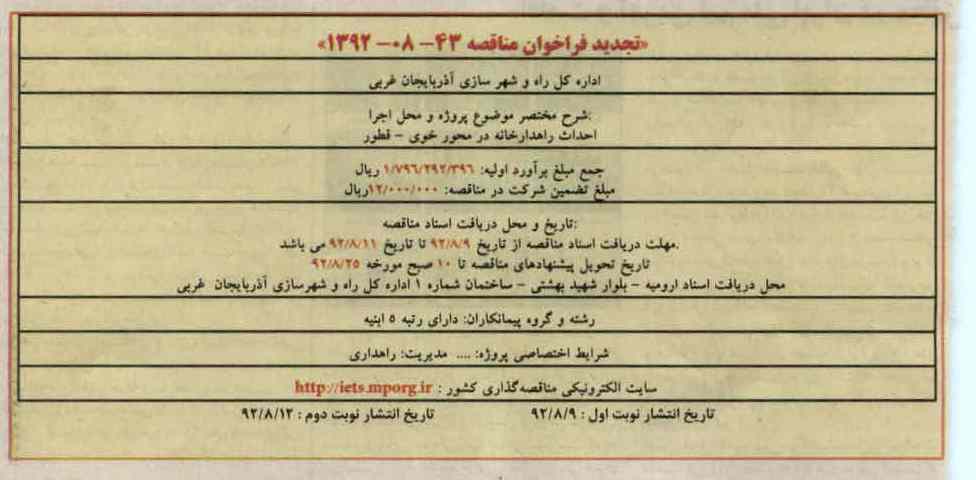 «تجدید فراخوان مناقصه ۴۳- ۰۸- ۱۳۹۲»
اداره کل راه و شهر سازی آذربایجان غربی
:شرح مختصر موضوع پروژه و محل اجرا
احداث راهدارخانه در محور خوی - قطور
جمع مبلغ برآورد اولیه: ۱/۷۹۶/۲۹۲/۳۹۶ ریال
مبلغ تضمین شرکت در مناقصه: ۱۲/۰۰۰/۰۰۰ریال
:تاریخ و محل دریافت اسناد مناقصه
.مهلت دریافت اسناد مناقصه از تاریخ ۹۲/۸/۹ تا تاریخ ۹۲/۸/۱۱ می باشد
تاریخ تحویل پیشنهادهای مناقصه تا ۱۰ صبح مورخه ۹۲/۸/۲۵
محل دریافت اسناد ارومیه - بلوار شهید بهشتی - ساختمان شماره ۱ اداره کل راه و شهرسازی آذربایجان غربی
رشته و گروه پیمانکاران: دارای رتبه ۵ ابنیه
شرایط اختصاصی پروژه: .... مدیریت: راهداری
سایت الکترونیکی مناقصه‌گذاری کشور : http://iets.mporg.ir
تاریخ انتشار نوبت اول : ۹۲/۸/۹ تاریخ انتشار نوبت دوم : ۹۲/۸/۱۲